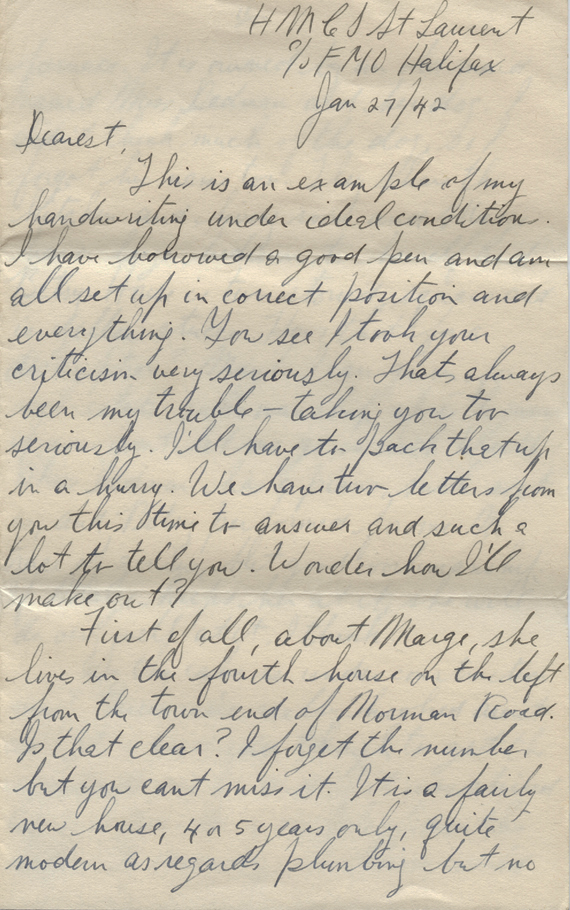 HMCS St Laurent
c/o FMO Halifax
Jan 27/42
Dearest,
This is an example of my
handwriting under ideal condition.
I have borrowed a good pen and am
all set up in correct position and
everything. You see I took your
criticism very seriously. Thats always
been my trouble – taking you too
seriously. I'll have to pack that up
in a hurry. We have two letters from
you this time to answer and such a
lot to tell you. Wonder how I'll
make out?
First of all, about Marge, she
lives in the fourth house on the left
from the town end of Morman Road.
Is that clear? I forget the number
but you cant miss it. It is a fairly
new house, 4 or 5 years only, quite
modern as regards plumbing but no